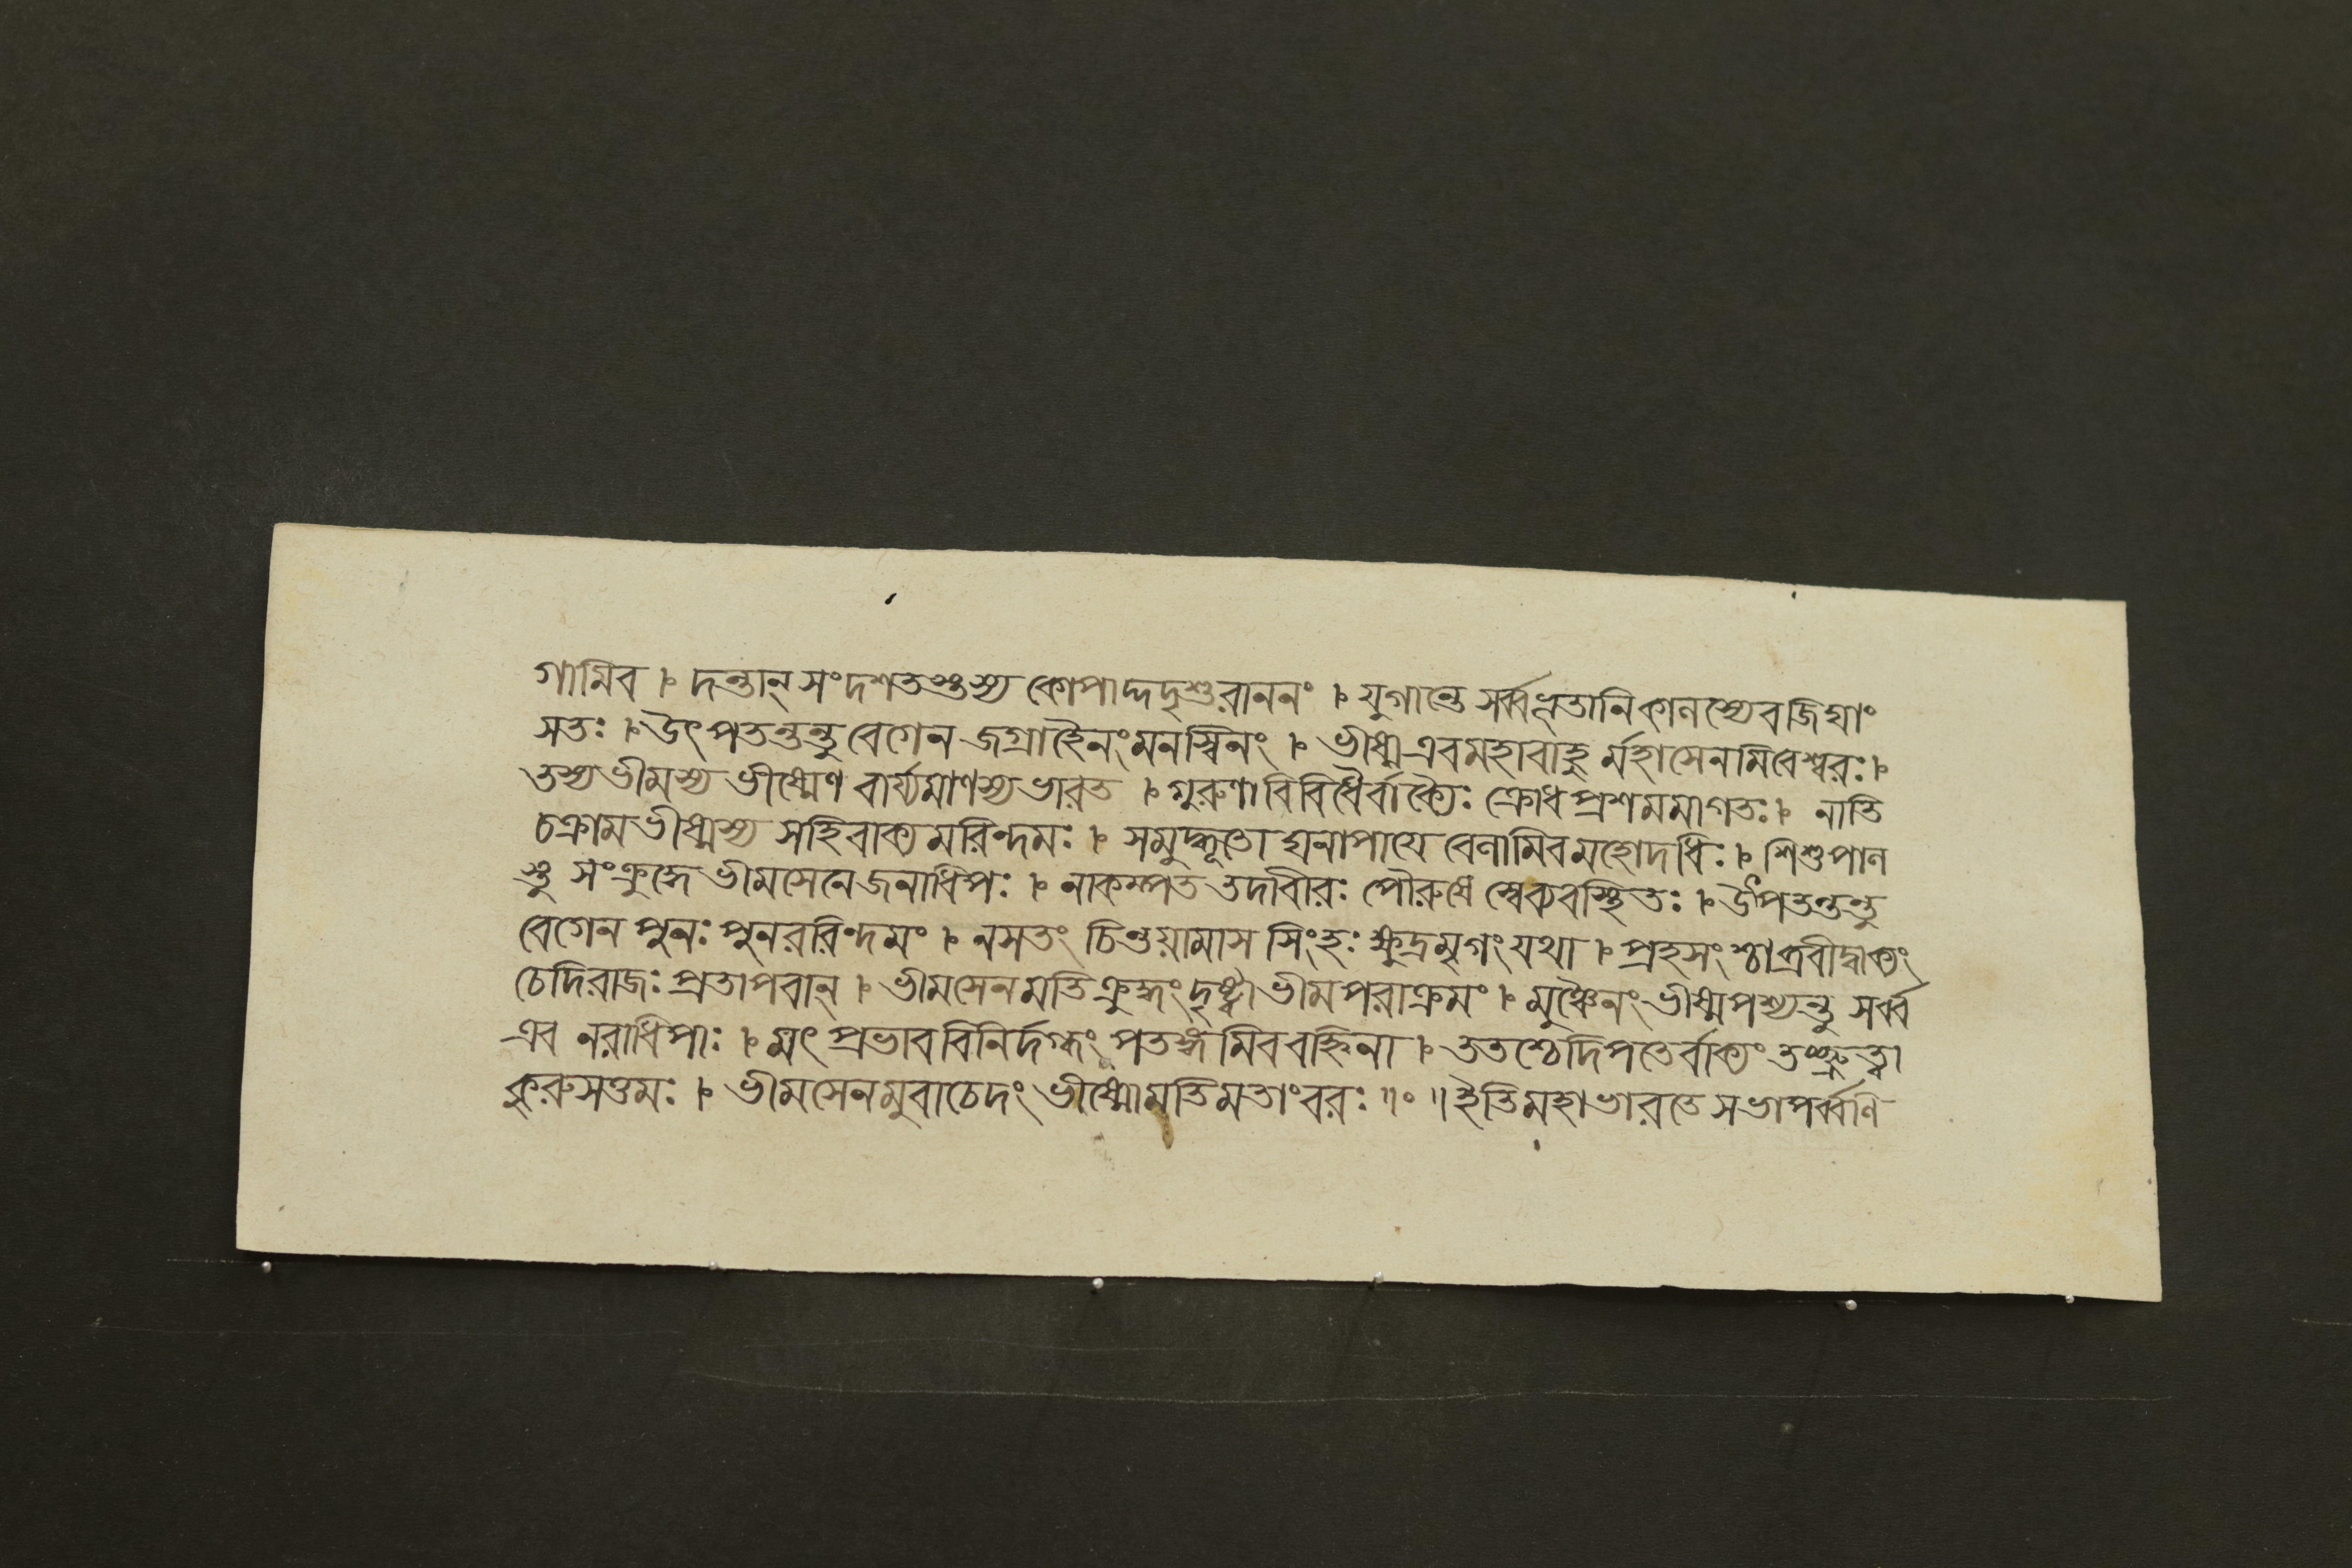 গামিব । দন্তান্ সংদশতস্তস্য কোপাদ্দদৃশুরাননং । যুগান্তে সর্ব্বভূতানিকালস্যেবজিঘাং
সতঃ । উৎপতন্তন্তু বেগেন জগ্রাহৈনংমনস্বিনং । ভীষ্ম এবমহাবাহু র্মহাসেনমিবেশ্বরঃ ।
তস্য ভীমস্য ভীষ্মেণ বার্য্যমাণস্যভারত । গুরুণাবিবিধৈর্বাক্যৈঃ ক্রোধপ্রশমমাগতঃ । নাতি
চক্রাম ভীষ্মস্য সহিবাক্যমরিন্দমঃ । সমুদ্ধূতো ঘনাপায়ে বেলামিবমহোদধিঃ । শিশুপাল
স্তু সংক্রুদ্ধে ভীমসেনে জনাধিপঃ । নাকম্পত তদাবীরঃ পৌরুষে স্বেব্যবস্থিতঃ । উৎপতন্তন্তু
বেগেন পুনঃ পুনররিন্দমং । নসতং চিন্তয়ামাস সিংহঃ ক্ষুদ্রমৃগং যথা । প্রহসং শ্চাব্রবীদ্বাক্যং
চেদিরাজঃ প্রতাপবান্ । ভীমসেনমতিক্রুদ্ধং দৃষ্ট্বাভীমপরাক্রমং । মুঞ্চৈনং ভীষ্মপশ্যন্তু সর্ব্ব
এব নরাধিপাঃ । মৎ প্রভাববিনির্দগ্ধং পতঙ্গমিববহ্নিনা । ততশ্চেদিপতের্বাক্যং তশ্রুত্বা
কুরুসত্তমঃ । ভীমসেনমুবাচেদং ভীষ্মোমতিমতাংবরঃ ॥ ০ ॥ ইতিমহাভারতে সভাপর্ব্বণি